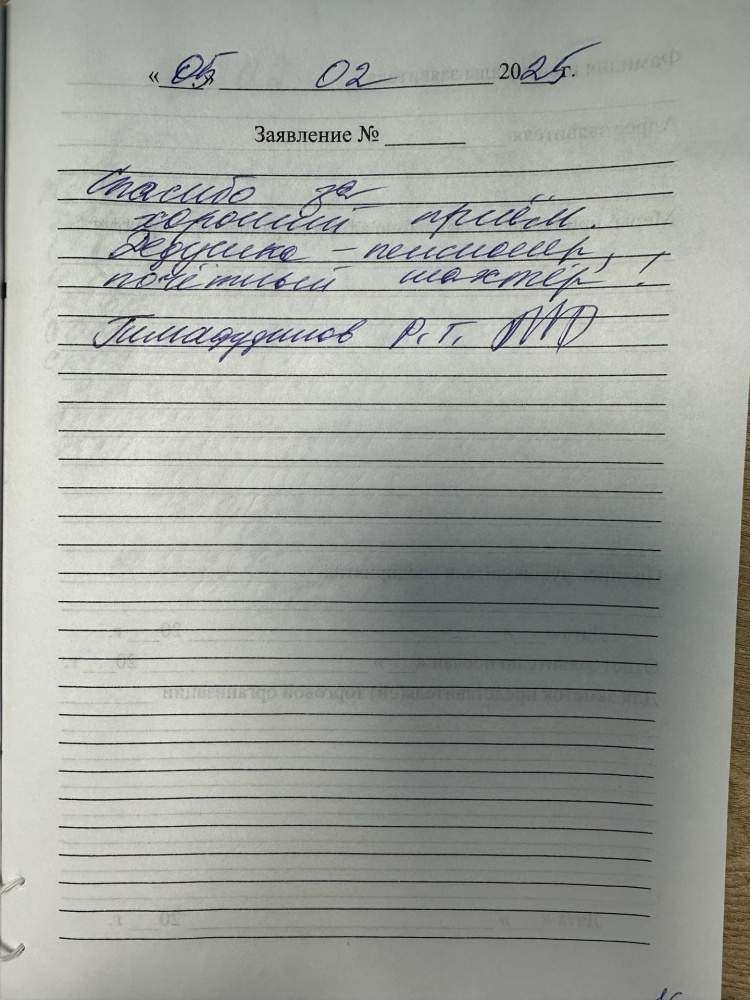 « 05 » 02 2025 г.
Заявление № ________
Спасибо за
хороший приём.
Дедушка – пенсионер,
почётный шахтёр!
Гимадудинов Р.Г.